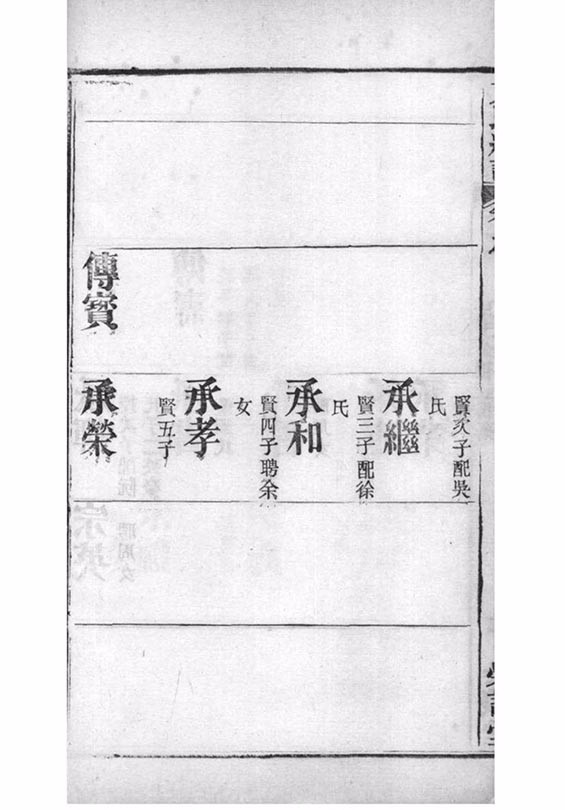 賢次子配吳
氏
承繼
賢三子配徐
氏
承和
賢四子聘余
女
承孝
賢五子
傳賓
承榮